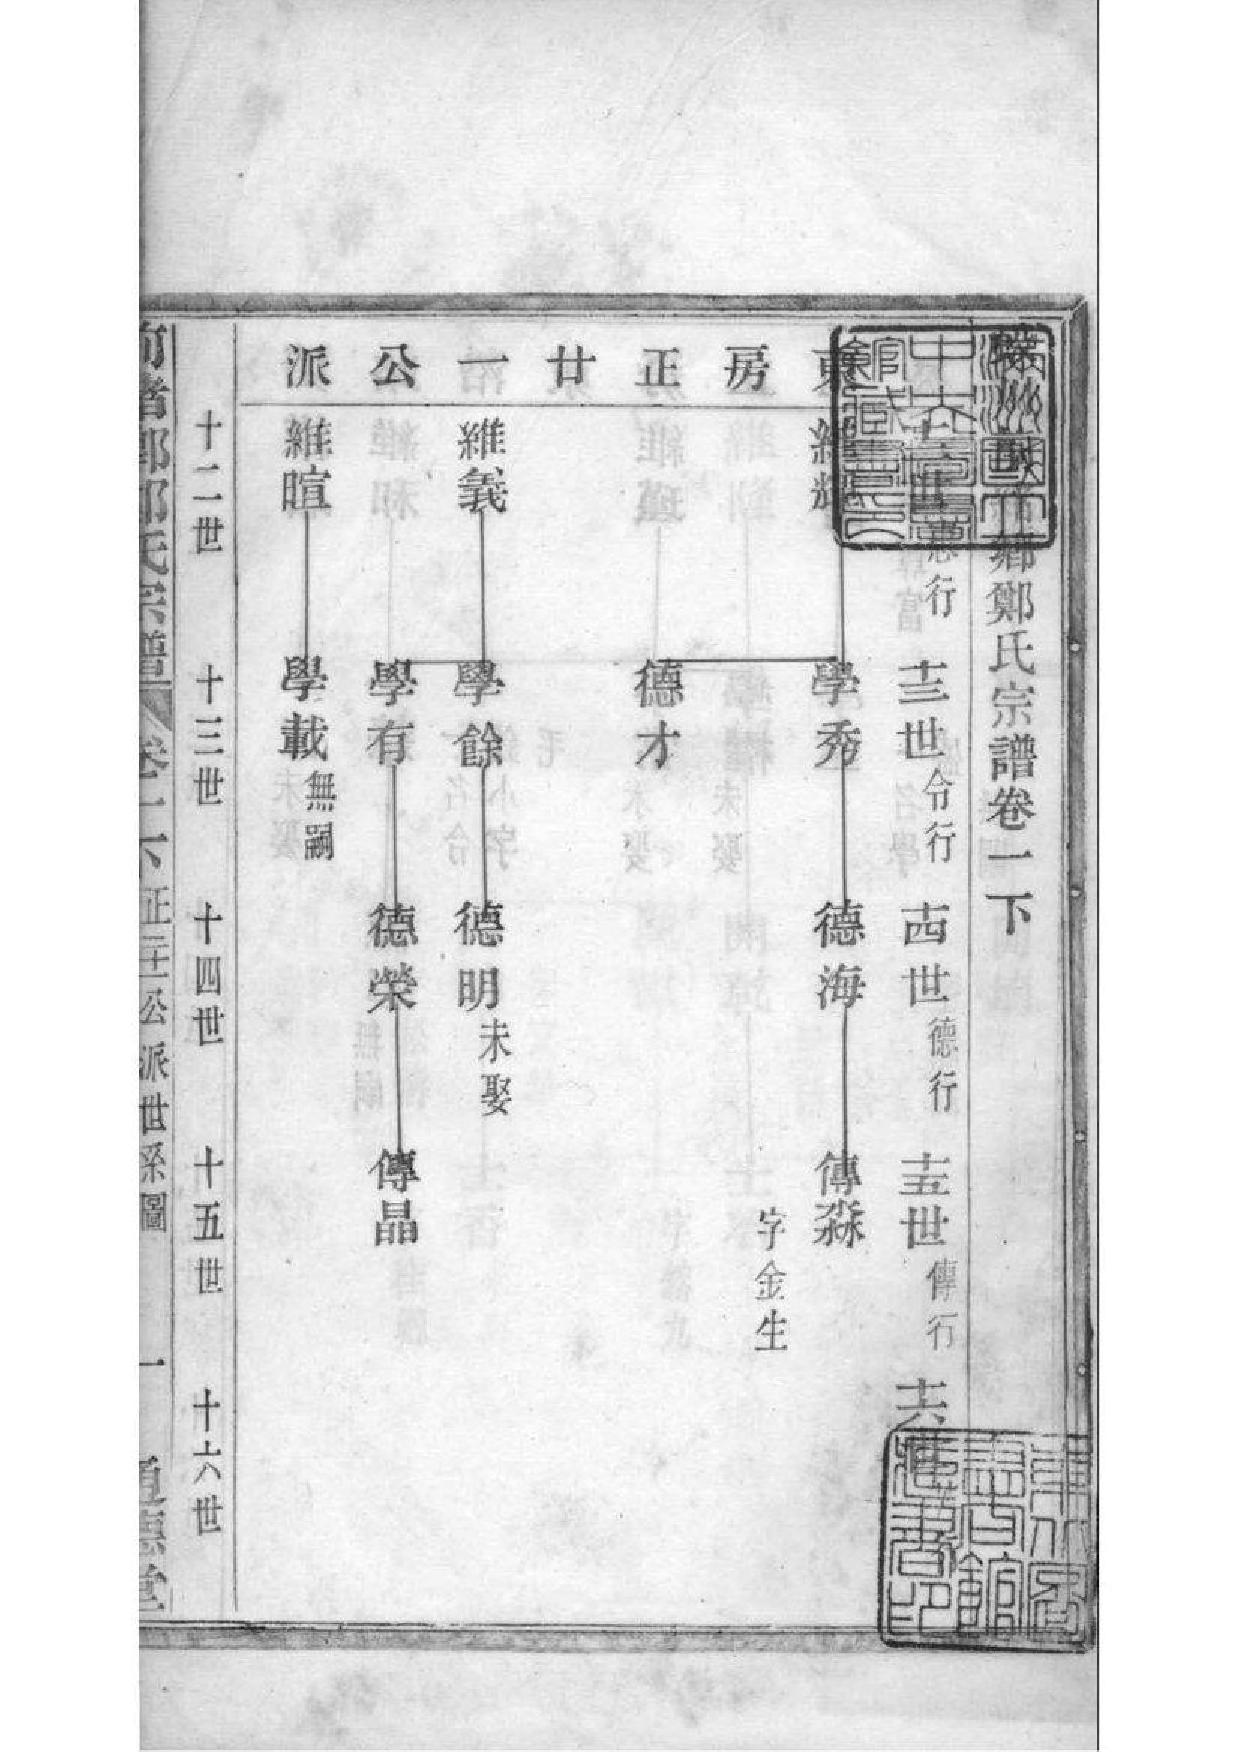 鄉鄭氏宗譜卷一下
行
十三世令行
十四世德行
十五世傳行
十六世
東房正廿一公派
維
學秀
德海
傳淼
字金生
德才
維義
學餘
德明
未娶
學有
德榮
傳晶
維暄
學載
無嗣
十二世
十三世
十四世
十五世
十六世
氏宗譜
卷一下
正廿一公派世系圖
一
道德堂